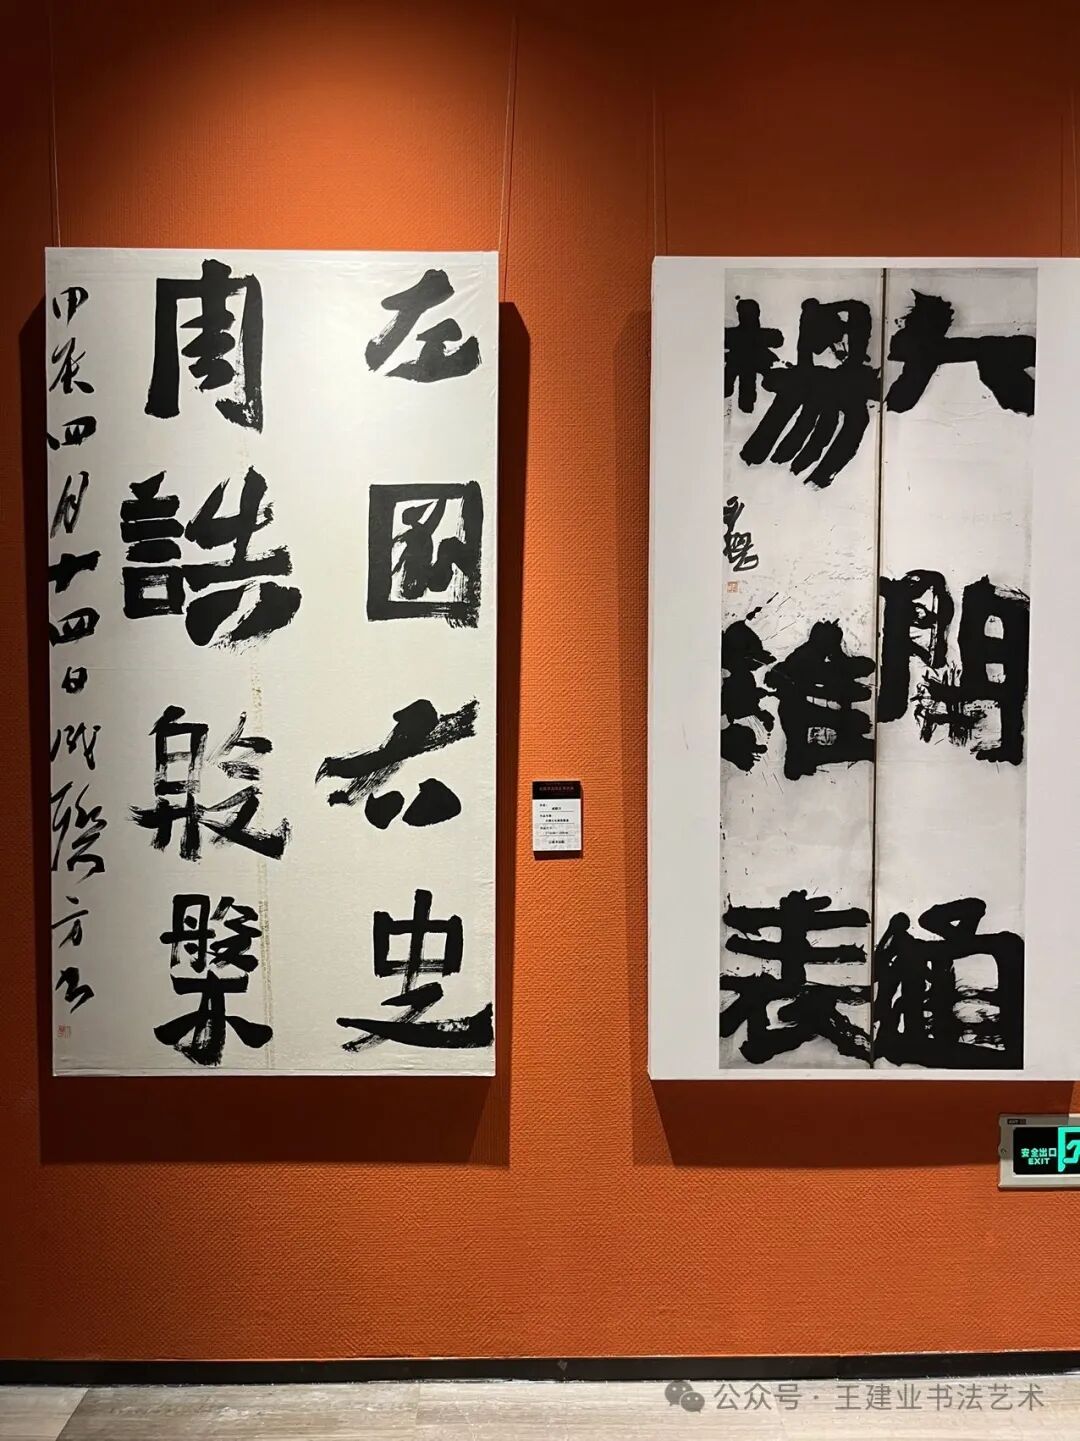 左圖右史
周誥殷槃
甲辰四月十四日成聯方书
大開通
楊淮表
安全出口
EXIT
公众号·王建业书法艺术